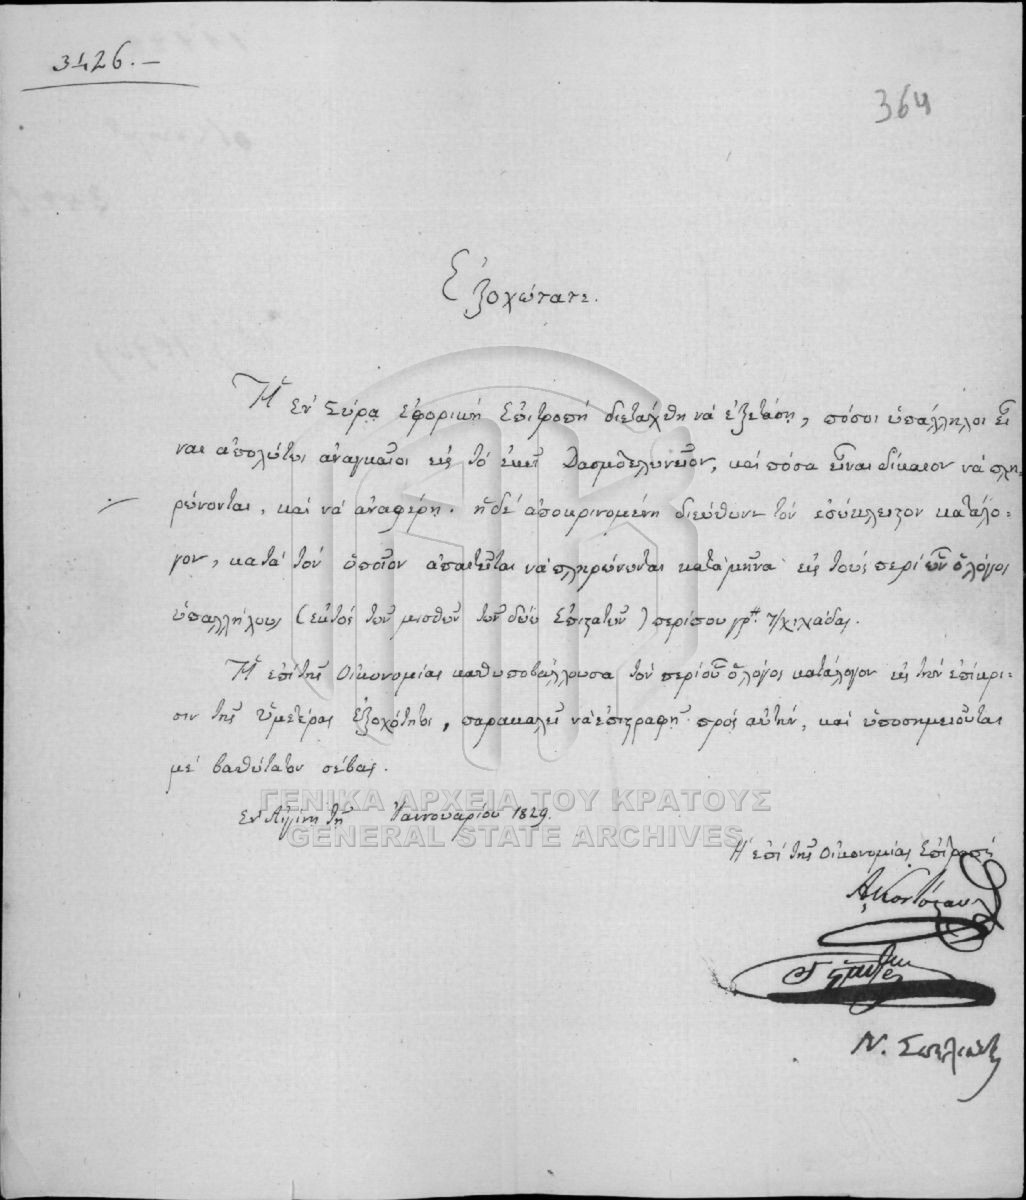 3426.–
364
Ἐξοχώτατε.
Ἡ ἐν Σύρᾳ ἐφορικὴ Ἐπιτροπὴ διετάχθη νὰ ἐξετάσῃ, πόσοι ὑπάλληλοι εἶ
ναι ἀπολύτως ἀναγκαῖοι εἰς τὸ ἐκεῖ Δασμοτελωνεῖον, καὶ πόσα εἶναι δίκαιον νὰ πλη-
ρώνονται, καὶ νὰ ἀναφέρῃ. ἡ δὲ ἀποκρινομένη διεύθυνε τὸν ἐσώκλειστον κατάλο-
γον, κατὰ τὸν ὁποῖον ἀπαιτεῖται νὰ πληρώνωνται κατὰ μῆνα εἰς τοὺς περὶ ὧν ὁ λόγος
ὑπαλλήλους (ἐκτὸς τοῦ μισθοῦ τῶν δύω Ἐπιστατῶν) περίπου γρ. 7/χιλιάδας.
Ἡ ἐπὶ τῆς Οἰκονομίας καθυποβάλλουσα τὸν περὶ οὗ ὁ λόγος κατάλογον εἰς τὴν ἐπίκρι-
σιν τῆς Ὑμετέρας Ἐξοχότητος, παρακαλεῖ νὰ ἐπιγραφῇ πρὸς αὐτήν, καὶ ὑποσημειοῦται
μὲ βαθύτατον σέβας.
Ἐν Αἰγίνῃ τῇ Ἰαννουαρίου 1829.
ΓΕΝΙΚΑ ΑΡΧΕΙΑ ΤΟΥ ΚΡΑΤΟΥΣ
GENERAL STATE ARCHIVES
Ἡ ἐπὶ τῆς Οἰκονομίας Ἐπιτροπή
Α. Κοντόσταυλ
Ν. Σπηλιάδ